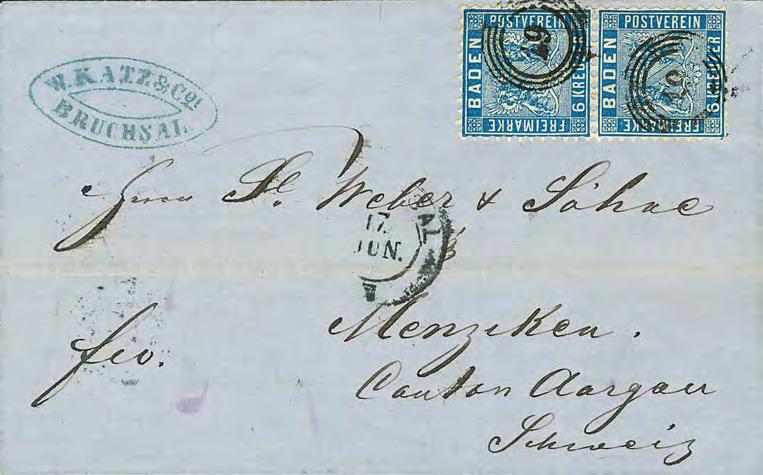 POSTVEREIN
BADEN
6 KREUZER
FREIMARKE
POSTVEREIN
BADEN
6 KREUZER
FREIMARKE
W. KATZ & Co!
BRUCHSAL
Herrn Sl. Weber & Söhne
17.
JUN.
AL
Menziken.
fco.
Canton Aargau
Schweiz